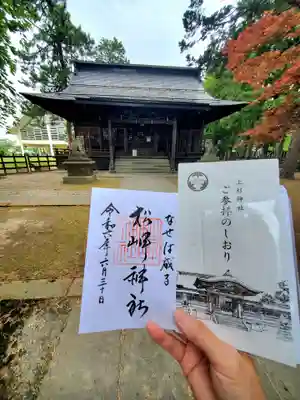 なせば成る
松岬神社
令和六年六月三十日
上杉神社
ご参拝のしおり